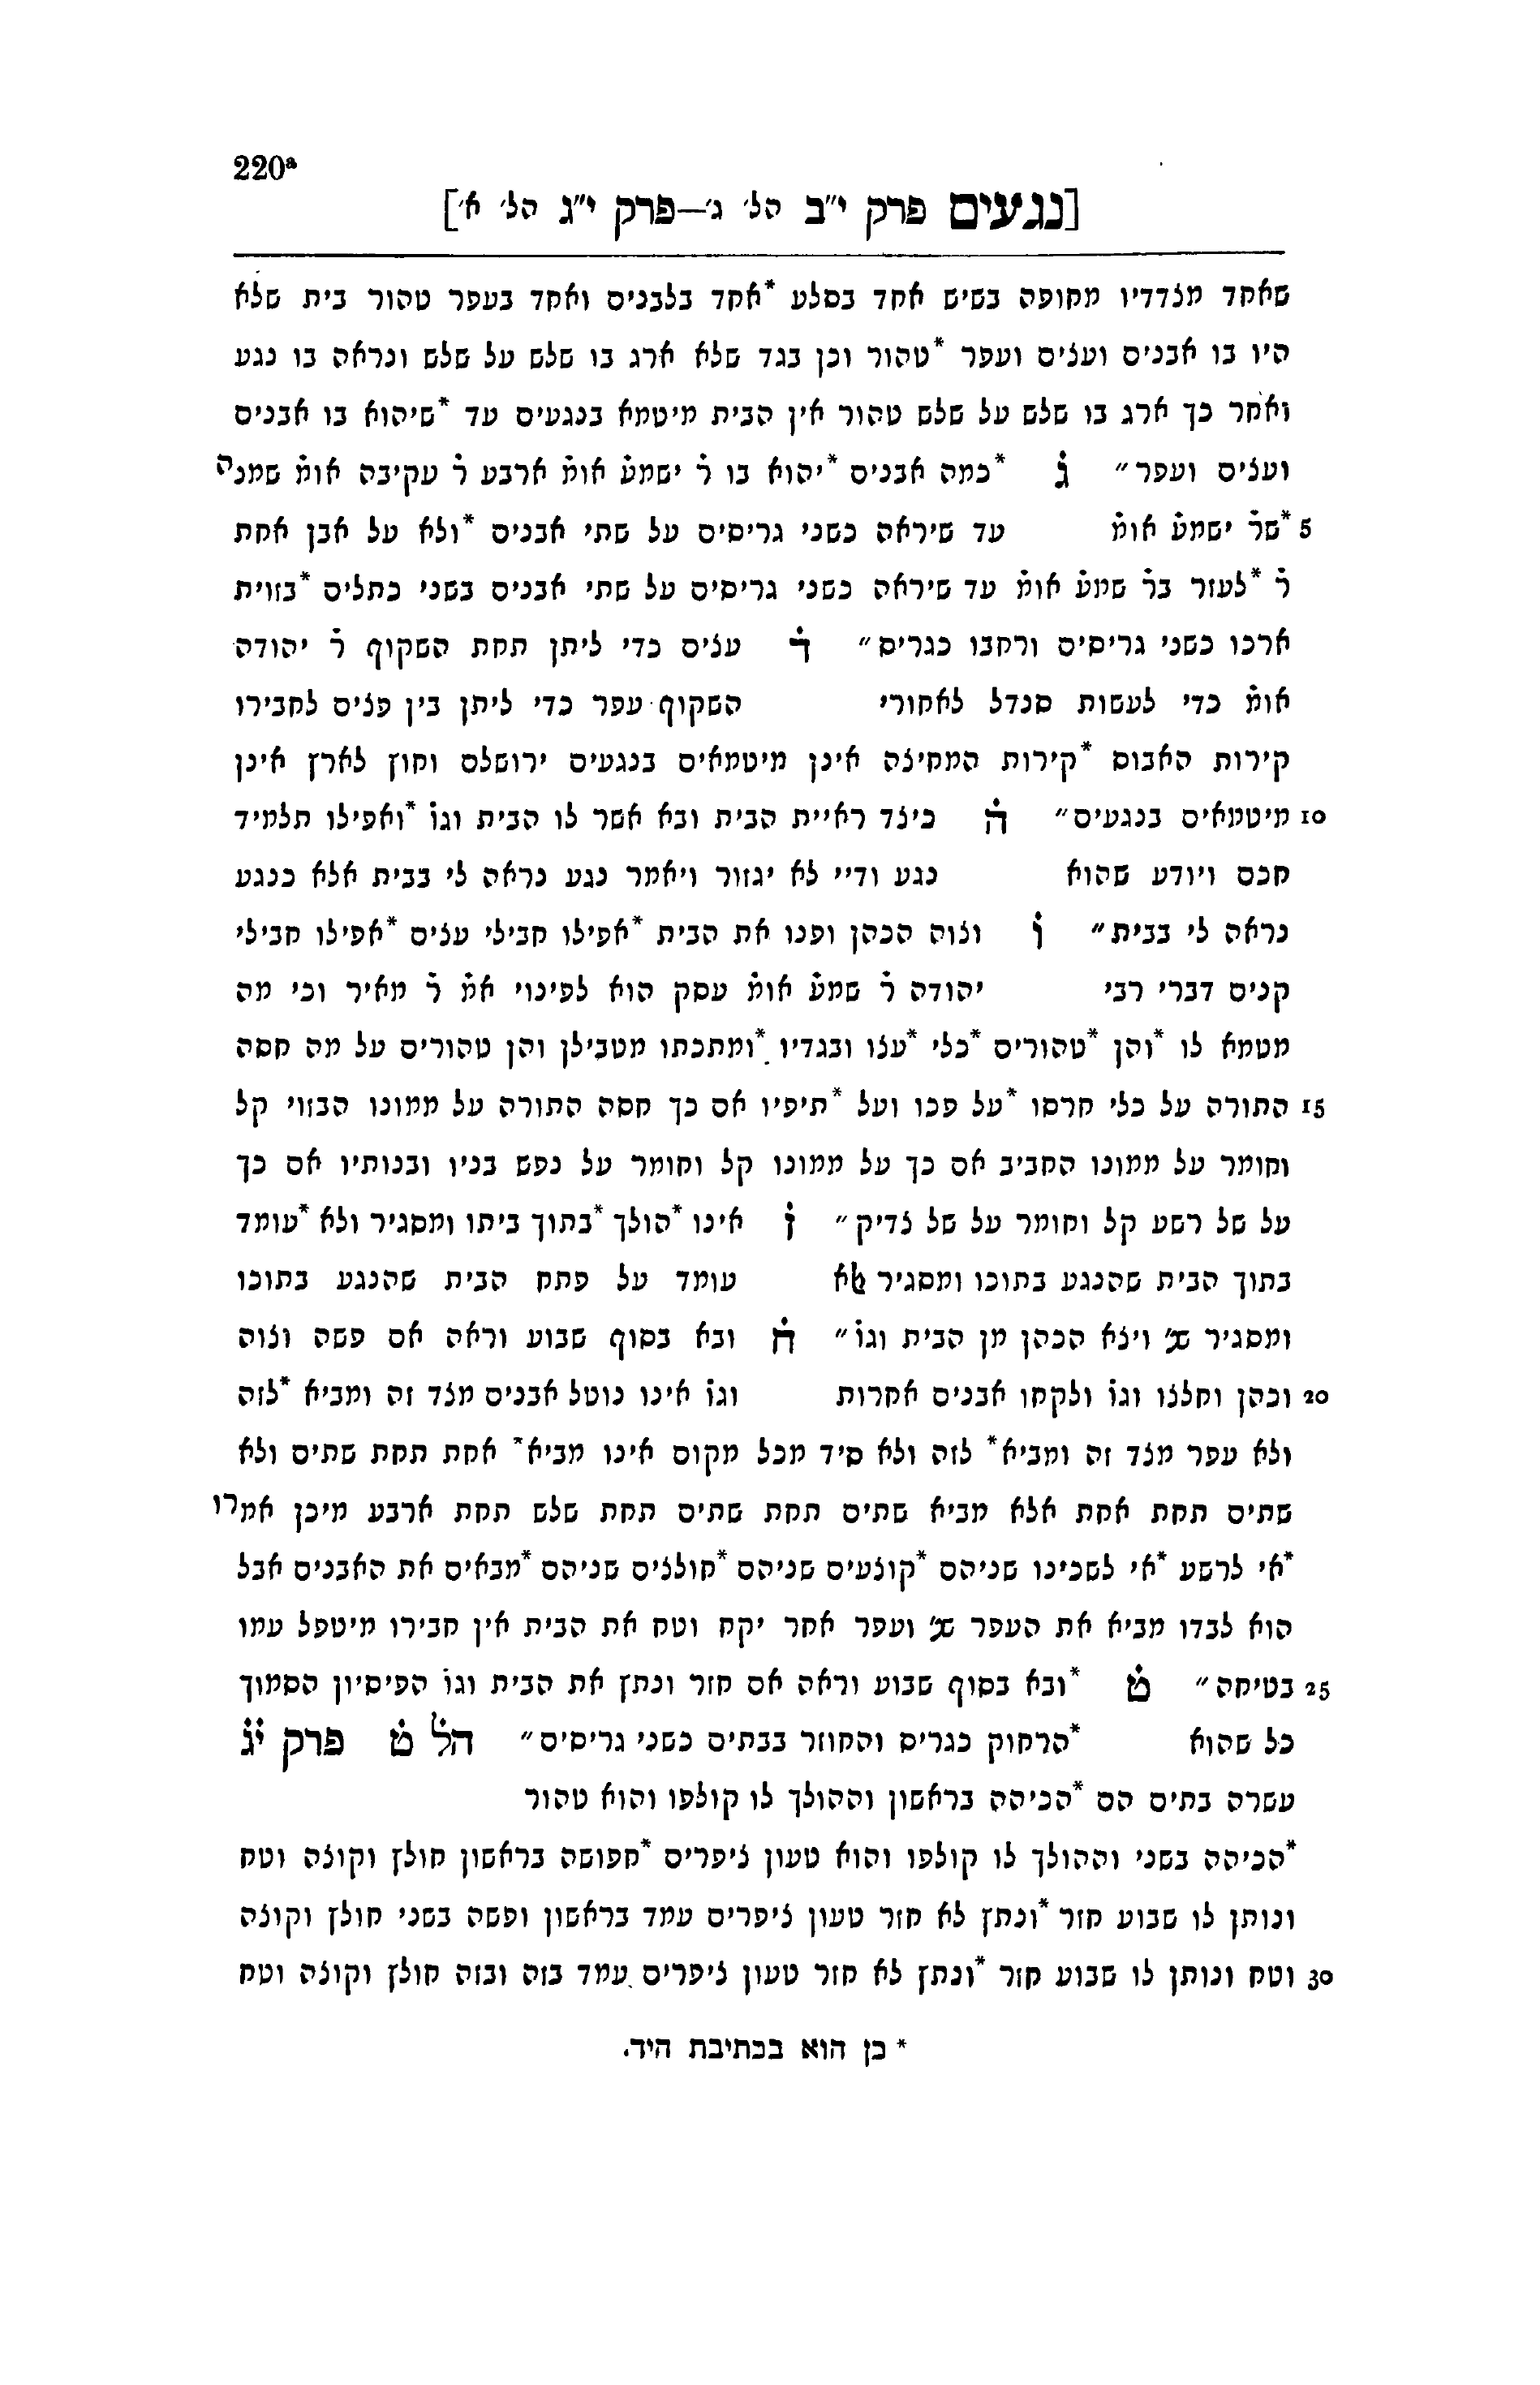 220a
[נגעים פרק י״ב הל׳ ג׳—פרק י״ג הל׳ א׳]
שאחד מצדדיו מחופה בשיש אחד בסלע *אחד בלבנים ואחד בעפר טהור בית שלא
היו בו אבנים ועצים ועפר *טהור וכן בגד שלא ארג בו שלש על שלש ונראה בו נגע
ואחר כך ארג בו שלש על שלש טהור אין הבית מיטמא בנגעים עד *שיהוא בו אבנים
ועצים ועפר״ ג̇ *כמה אבנים *יהוא בו ר̇ ישמע̇ אומ̇ ארבע ר̇ עקיבה אומ̇ שמנה
5 *שר̇ ישמע̇ אומ̇ עד שיראה כשני גריסים על שתי אבנים *ולא על אבן אחת
ר̇ *לעזר בר̇ שמע̇ אומ̇ עד שיראה כשני גריסים על שתי אבנים בשני כתלים *בזוית
ארכו כשני גריסים ורחבו כגריס״ ד̇ עצים כדי ליתן תחת השקוף ר̇ יהודה
אומ̇ כדי לעשות סנדל לאחורי השקוף עפר כדי ליתן בין פצים לחבירו
קירות האבוס *קירות המחיצה אינן מיטמאים בנגעים ירושלם וחוץ לארץ אינן
10 מיטמאים בנגעים״ ה̇ כיצד ראיית הבית ובא אשר לו הבית וגו̇ *ואפילו תלמיד
חכם ויודע שהוא נגע ודיי לא יגזור ויאמר נגע נראה לי בבית אלא כנגע
נראה לי בבית״ ו̇ וצוה הכהן ופנו את הבית *אפילו חבילי עצים *אפילו חבילי
קנים דברי רבי יהודה ר̇ שמע̇ אומ̇ עסק הוא לפינוי אמ̇ ר̇ מאיר וכי מה
מטמא לו *והן *טהורים *כלי *עצו ובגדיו *ומתכתו מטבילן והן טהורים על מה חסה
15 התורה על כלי חרסו *על פכו ועל *תיפיו אם כך חסה התורה על ממונו הבזוי קל
וחומר על ממונו החביב אם כך על ממונו קל וחומר על נפש בניו ובנותיו אם כך
על של רשע קל וחומר על של צדיק״ ז̇ אינו *הולך *בתוך ביתו ומסגיר ולא *עומד
בתוך הבית שהנגע בתוכו ומסגיר אלא עומד על פתח הבית שהנגע בתוכו
ומסגיר שנ׳ ויצא הכהן מן הבית וגו̇״ ח̇ ובא בסוף שבוע וראה אם פשה וצוה
20 וכהן וחלצו וגו̇ ולקחו אבנים אחרות וגו̇ אינו נוטל אבנים מצד זה ומביא *לזה
ולא עפר מצד זה ומביא* לזה ולא סיד מכל מקום אינו מביא* אחת תחת שתים ולא
שתים תחת אחת אלא מביא שתים תחת שתים תחת שלש תחת ארבע מיכן אמרו
*אי לרשע *אי לשכינו שניהם *קוצעים שניהם *חולצים שניהם *מבאים את האבנים אבל
הוא לבדו מביא את העפר שנ׳ ועפר אחר יקח וטח את הבית אין חבירו מיטפל עמו
25 בטיחה״ ט̇ *ובא בסוף שבוע וראה אם חזר ונתץ את הבית וגו̇ הפיסיון הסמוך
כל שהוא *הרחוק כגריס והחוזר בבתים כשני גריסים״ הל̇ ט̇ פרק י̇ג̇
עשרה בתים הם *הכיהה בראשון וההולך לו קולפו והוא טהור
*הכיהה בשני וההולך לו קולפו והוא טעון ציפרים *חפושה בראשון חולץ וקוצה וטח
ונותן לו שבוע חזר *ונתץ לא חזר טעון ציפרים עמד בראשון ופשה בשני חולץ וקוצה
30 וטח ונותן לו שבוע חזר *ונתץ לא חזר טעון ציפרים עמד בזה ובזה חולץ וקוצה וטח
* כן הוא בכתיבת היד.